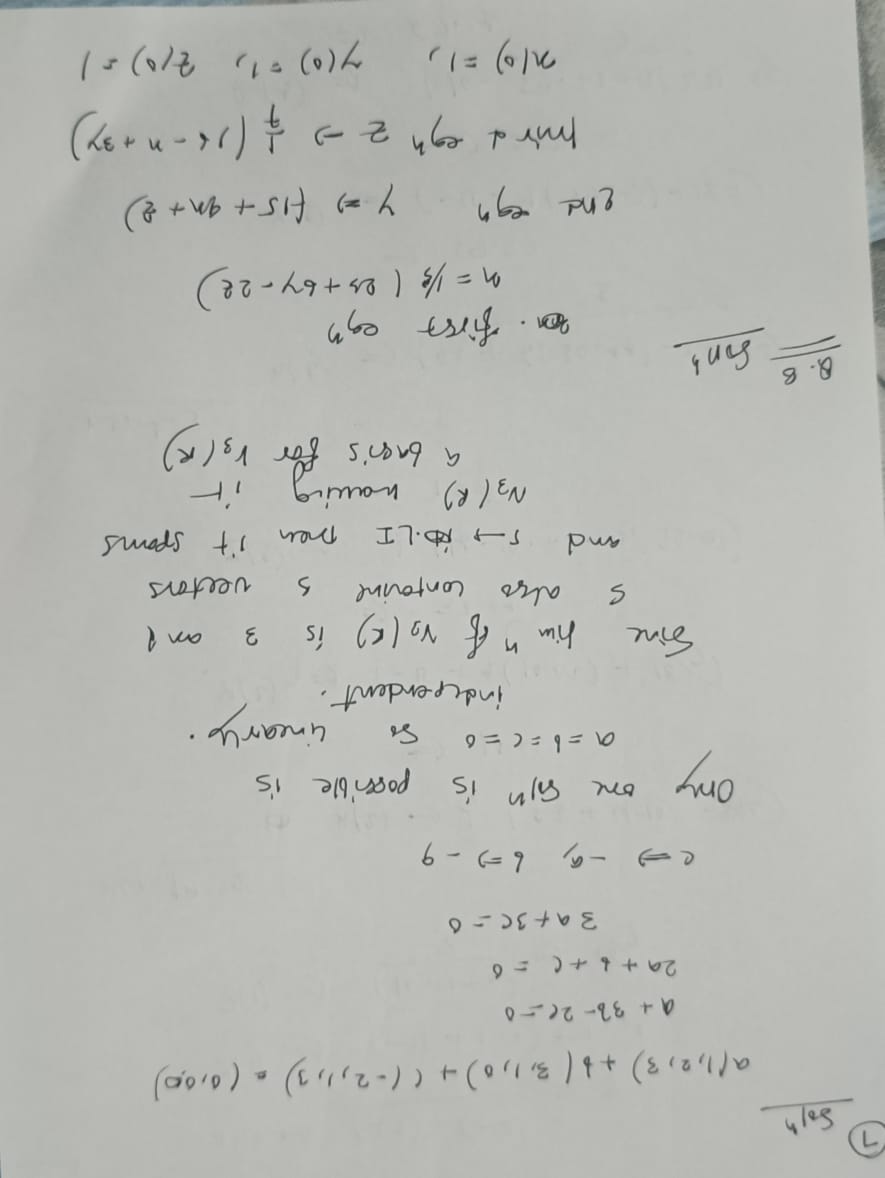 7
Solⁿ
a(1,2,3) + b(3,1,0) + c(-2,1,3) = (0,0,0)
a + 3b - 2c = 0
2a + b + c = 0
3a + 3c = 0
c ⇒ -a, b ⇒ -a
Only one solⁿ is possible is
a = b = c = 0 So linearly.
independent.
Sine dim ⁿ of V₃(R) is 3 and
S also containe 3 vectors
and S → LI then it spans
V₃(R) making it
a basis for V₃(R)
Q. 8 Solⁿ
first eqⁿ
x = 1/3 ( 25 + 6y - 2z)
2nd eqⁿ y ⇒ (-15 + 4x + z)
third eqⁿ z → 1/7 (16 - x + 3y)
x(0) = 1, y(0) = 1, z(0) = 1